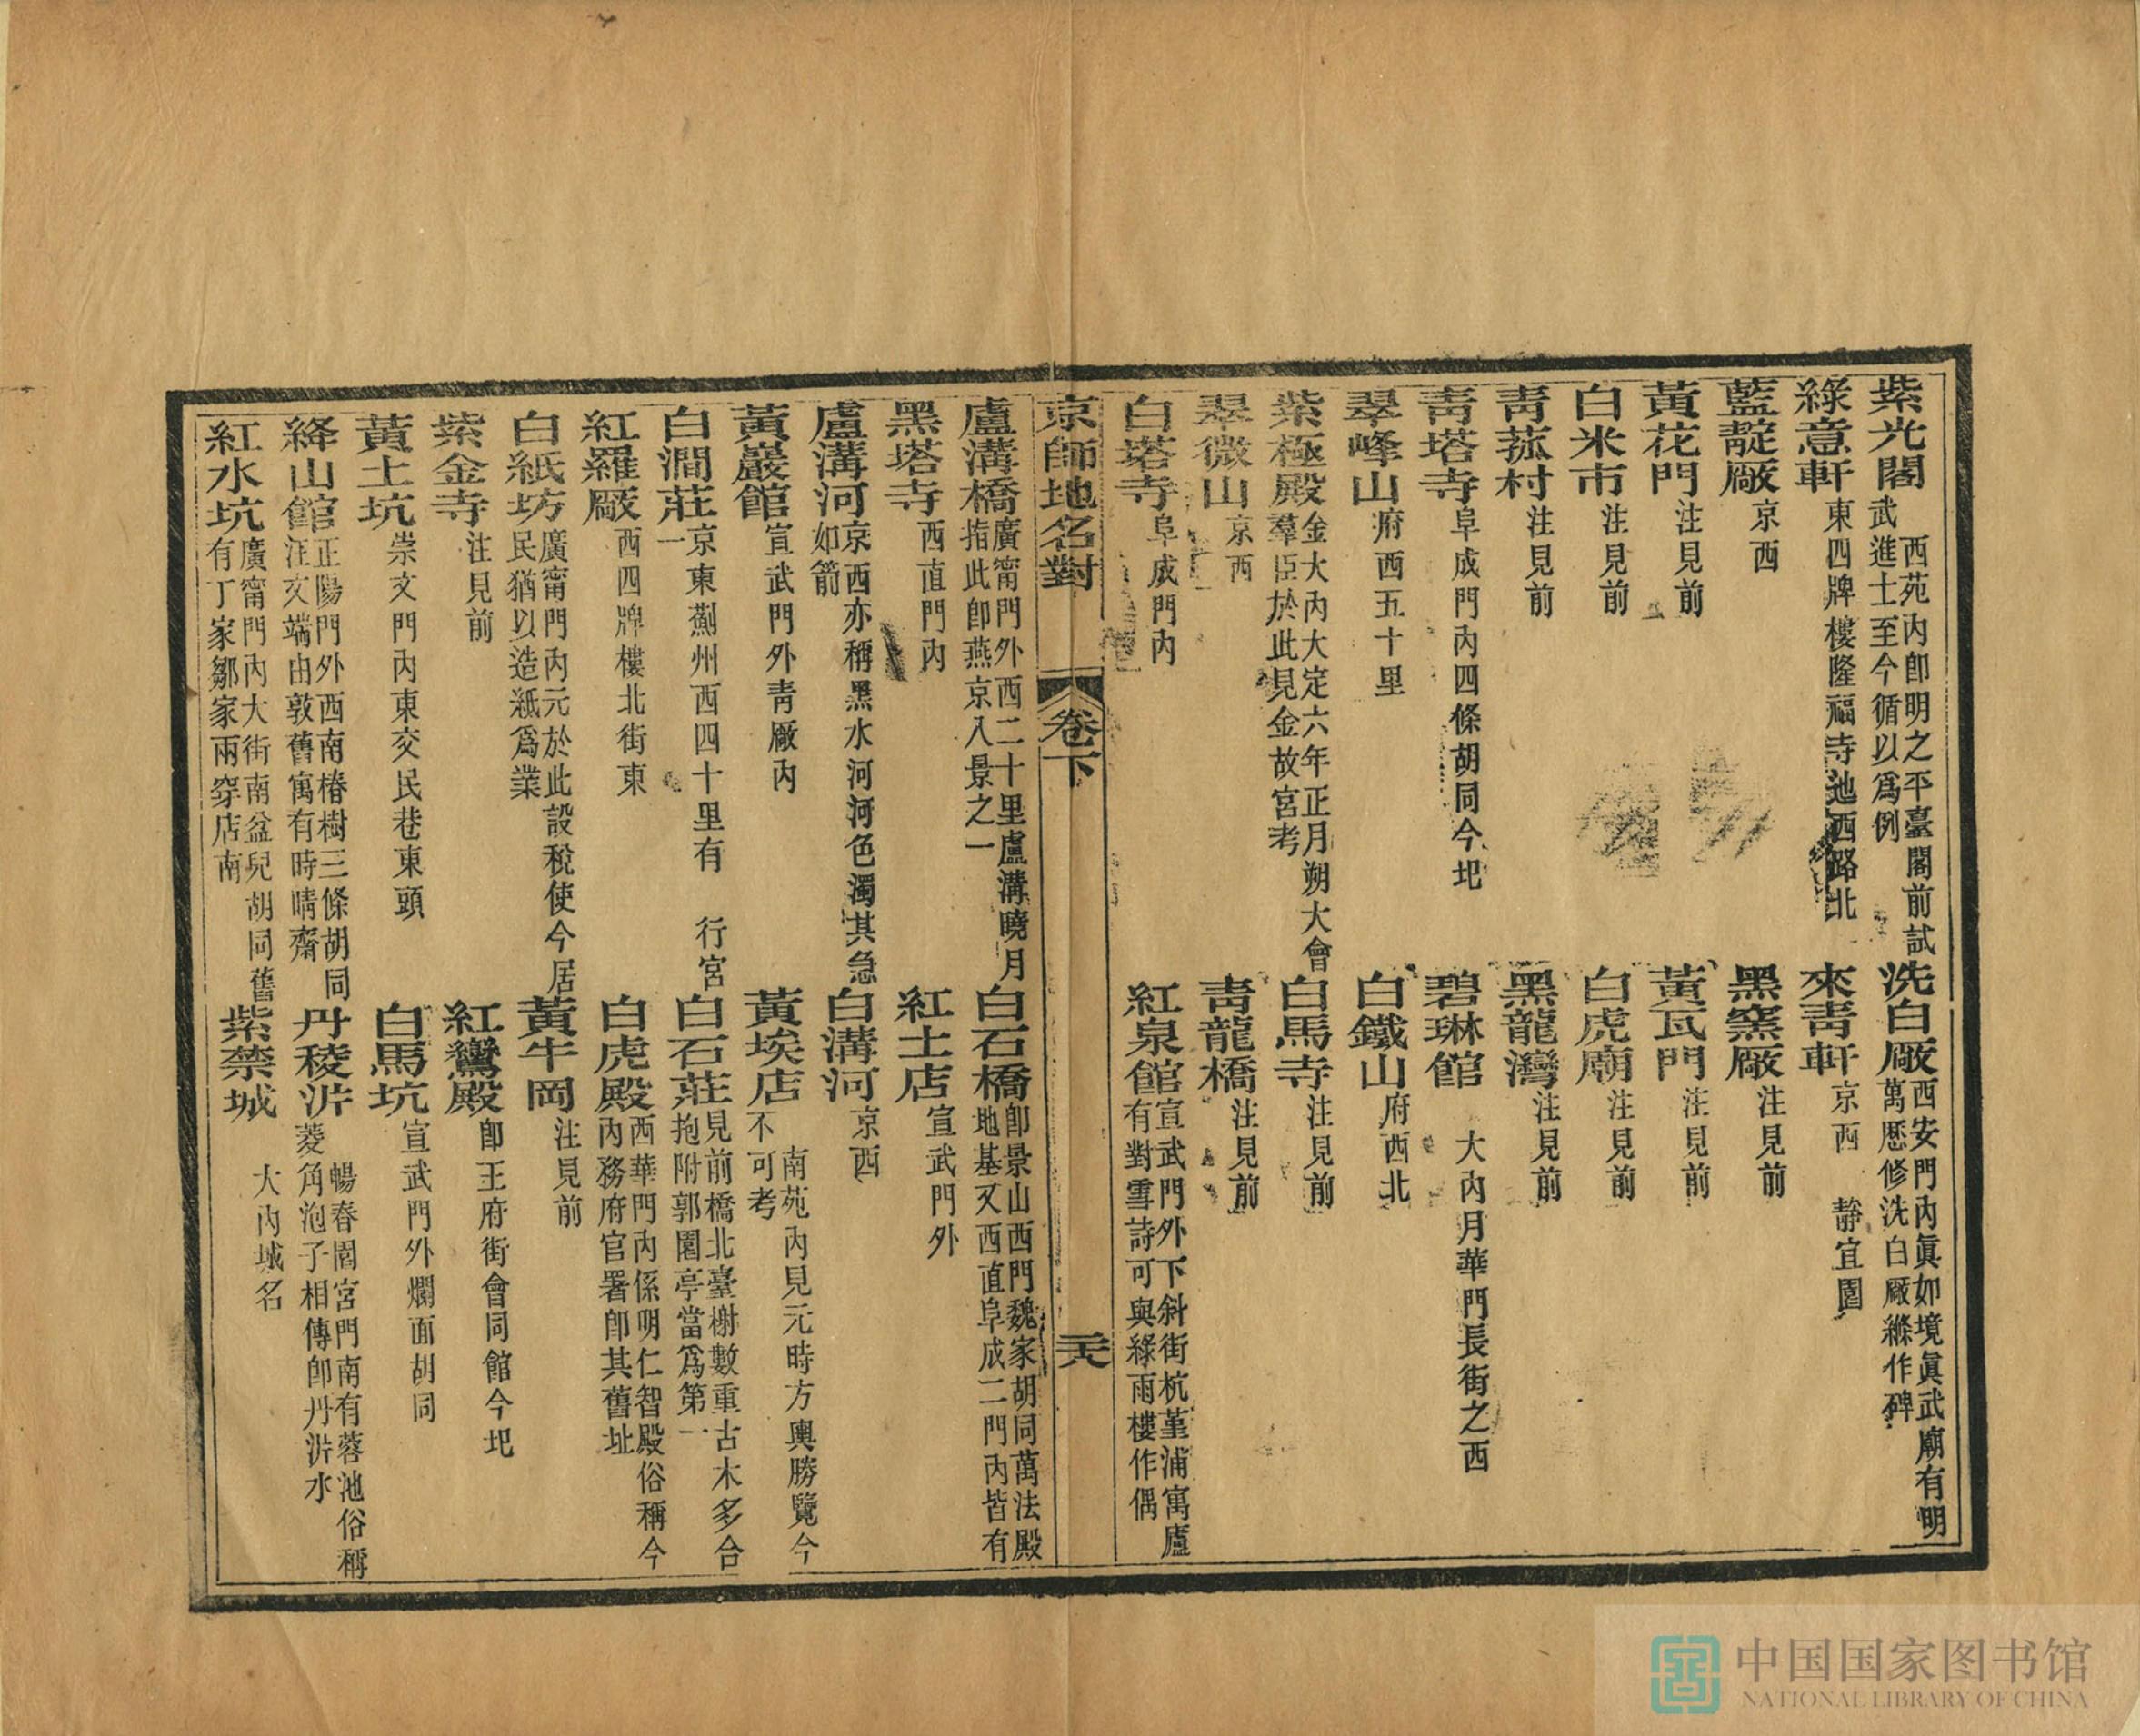 紫光閣 西苑內卽明之平臺閣前試武進士至今循以爲例 洗白廠 西安門內眞如境眞武廟有明萬厯修洗白廠縧作碑
綠意軒 東四牌樓隆福寺迤西路北 來靑軒 京西 靜宜園
藍靛廠 京西 黑窯廠 注見前
黃花門 注見前 黃瓦門 注見前
白米市 注見前 白虎廟 注見前
靑菰村 注見前 黑龍灣 注見前
靑塔寺 阜成門內四條胡同今圯 碧琳館 大內月華門長街之西
翠峰山 府西五十里 白鐵山 府西北
紫極殿 金大內大定六年正月朔大會羣臣於此見金故宮考 白馬寺 注見前
翠微山 京西 靑龍橋 注見前
白塔寺 阜成門內 紅泉館 宣武門外下斜街杭堇浦寓廬有對雪詩可與綠雨樓作偶
京師地名對 卷下 二十八
盧溝橋 廣甯門外西二十里盧溝曉月指此卽燕京八景之一 白石橋 卽景山西門魏家胡同萬法殿地基又西直阜成二門內皆有
黑塔寺 西直門內 紅土店 宣武門外
盧溝河 京西亦稱黑水河河色濁其急如箭 白溝河 京西
黃巖館 宣武門外靑厰內 黃埃店 南苑內見元時方輿勝覽今不可考
白澗莊 京東薊州西四十里有 行宮一 白石莊 見前橋北臺榭數重古木多合抱附郭園亭當爲第一
紅羅厰 西四牌樓北街東 白虎殿 西華門內係明仁智殿俗稱今內務府官署卽其舊址
白紙坊 廣甯門內元於此設稅使今居民猶以造紙爲業 黃牛岡 注見前
紫金寺 注見前 紅鸞殿 卽王府街會同館今圯
黃土坑 崇文門內東交民巷東頭 白馬坑 宣武門外爛面胡同
絳山館 正陽門外西南椿樹三條胡同汪文端由敦舊寓有時晴齋 丹稜沜 暢春園宮門南有蓉池俗稱菱角泡子相傳卽丹沜水
紅水坑 廣甯門內大街南盆兒胡同舊有丁家鄒家兩穿店南 紫禁城 大內城名
中国国家图书馆
NATIONAL LIBRARY OF CHINA